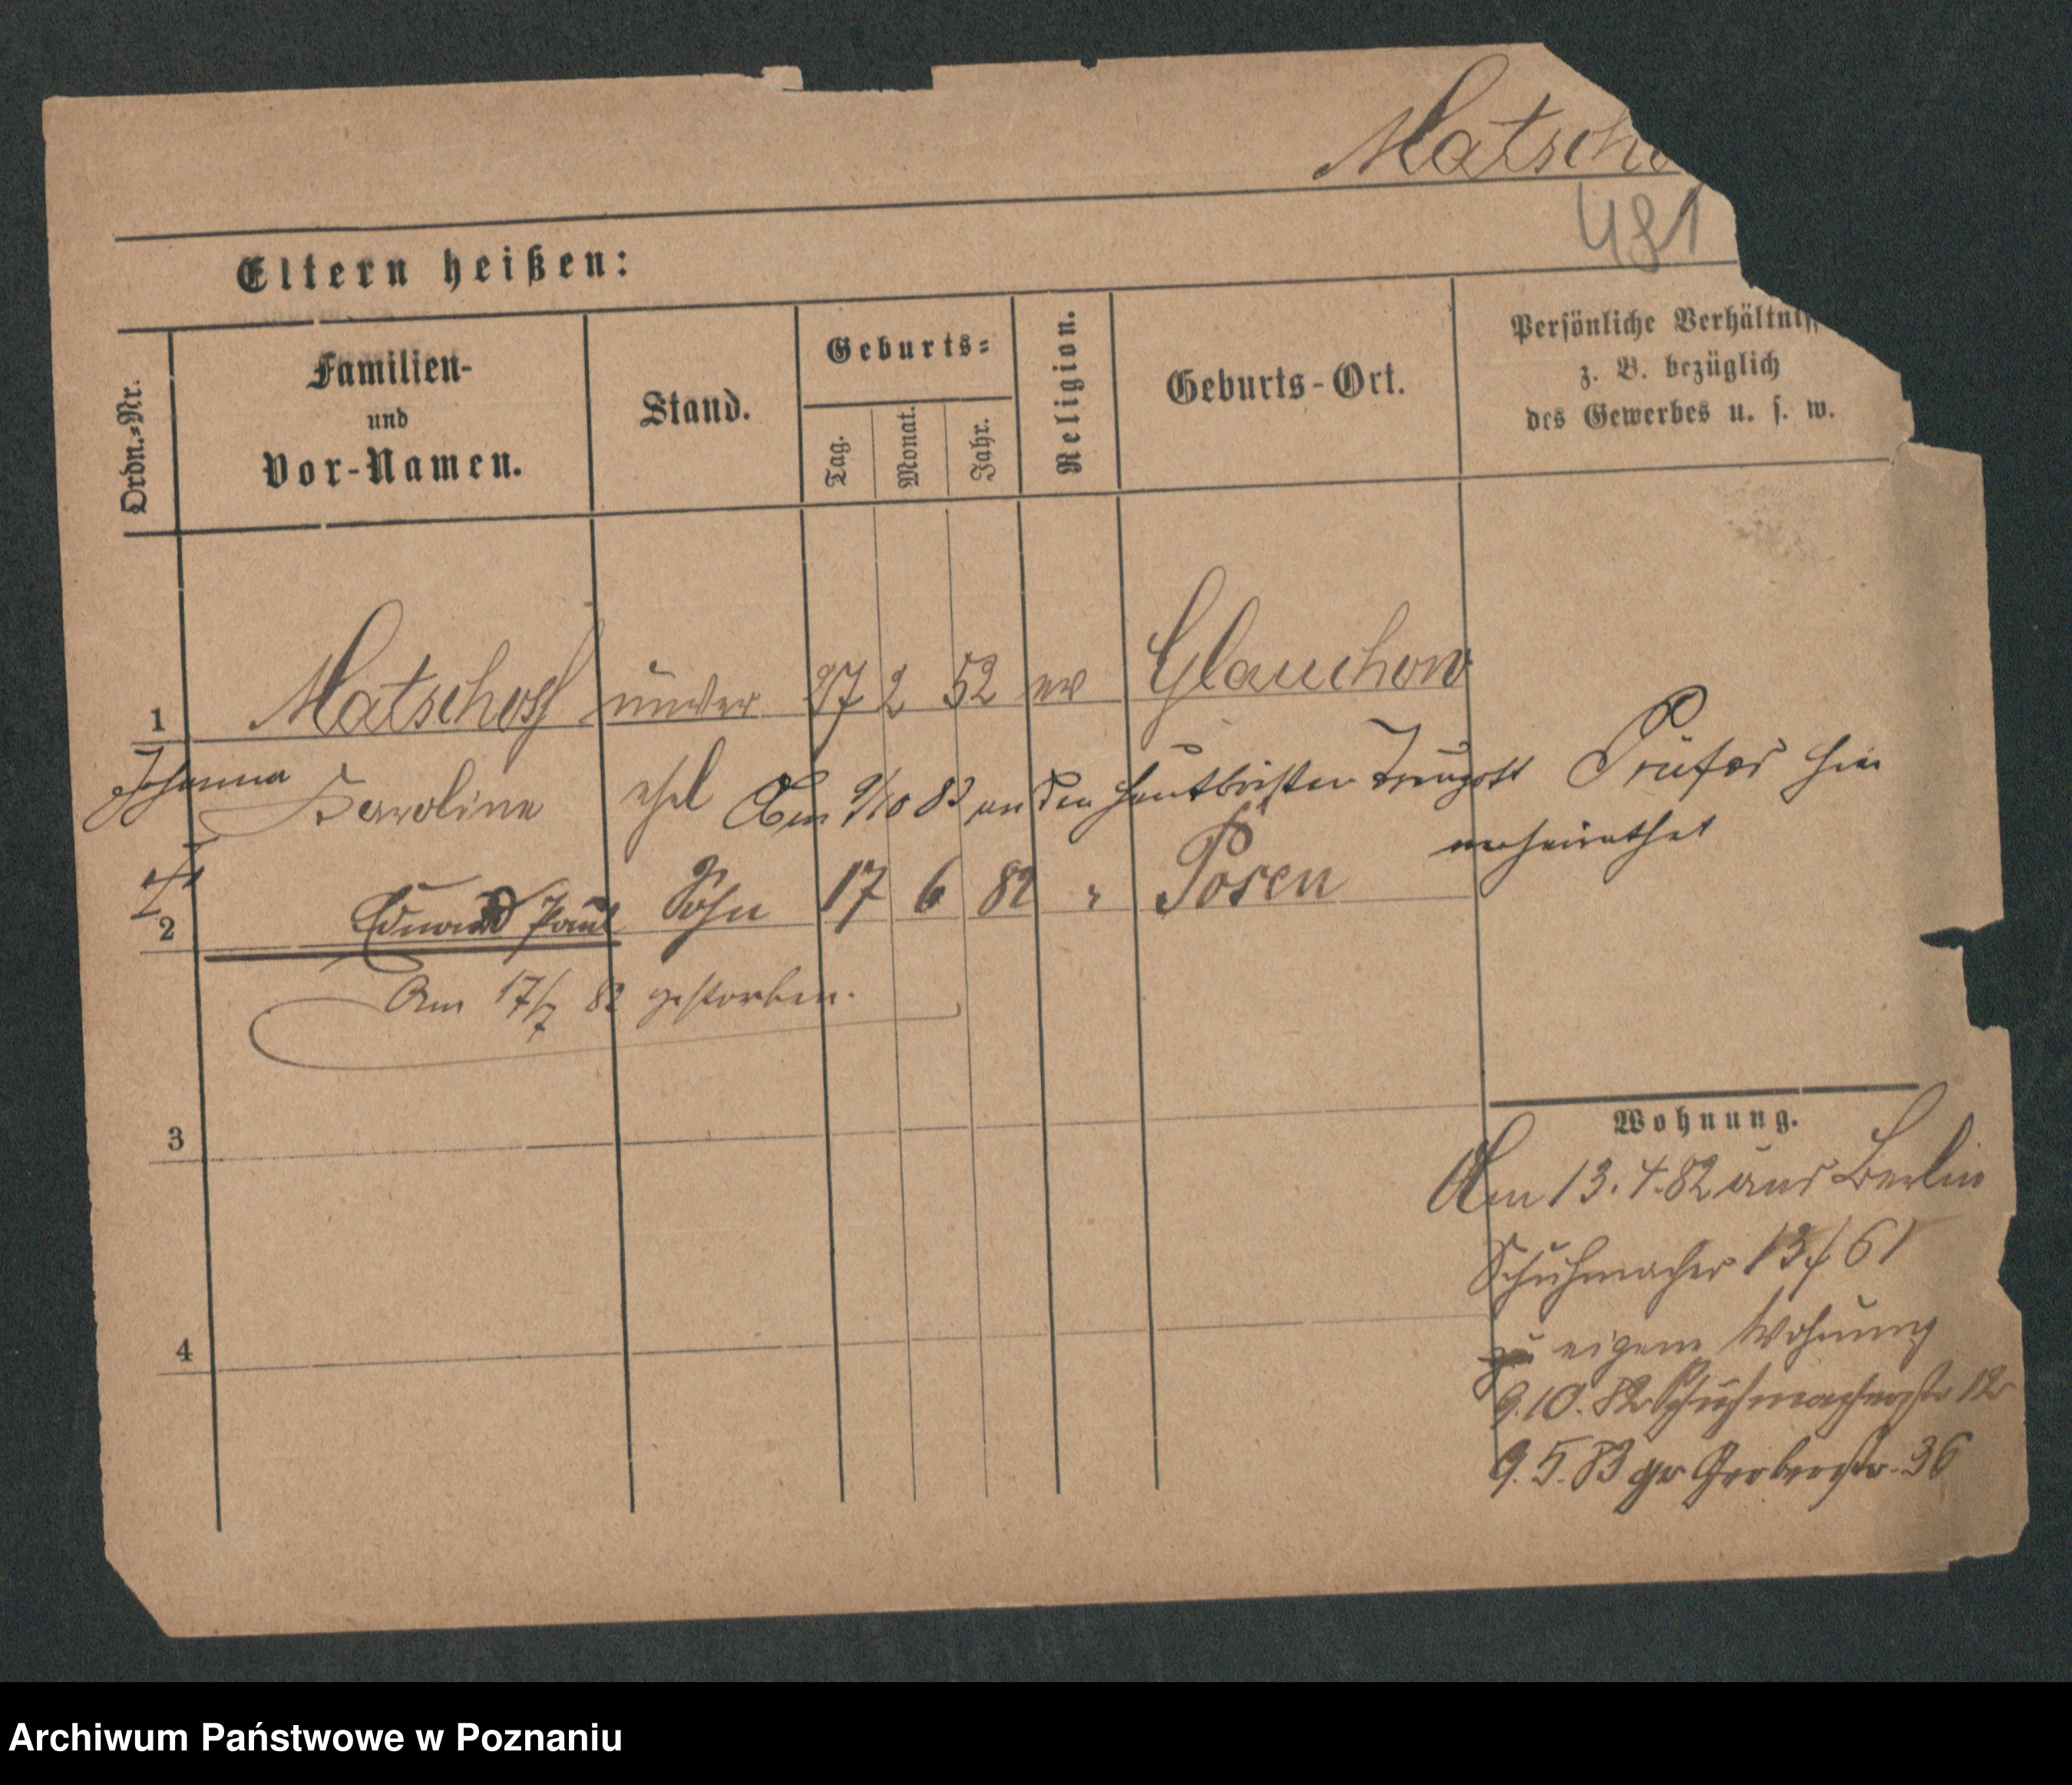 Matscho
481
Eltern heißen:
Ordn.-Nr.
Familien-
und
Vor-Namen.
Stand.
Geburts-
Tag.
Monat.
Jahr.
Religion.
Geburts-Ort.
Persönliche Verhältniss
z. B. bezüglich
des Gewerbes u. s. w.
1 Matschoss unver 27 2 52 ev Glauchow
Johanna Karoline ehel Am 9/10 83 an den Traugott Prüfer hier
verheirathet
† 2 Eduard Paul Sohn 17 6 82 " Posen
Am 17/7 82 gestorben.
3
4
Wohnung.
Am 13.4.82 aus Berlin
Schuhmacher 13/61
zu eigene Wohnung
9.10.82 Schuhmacherstr 12
9.5.83 gr Gerberstr. 36
Archiwum Państwowe w Poznaniu